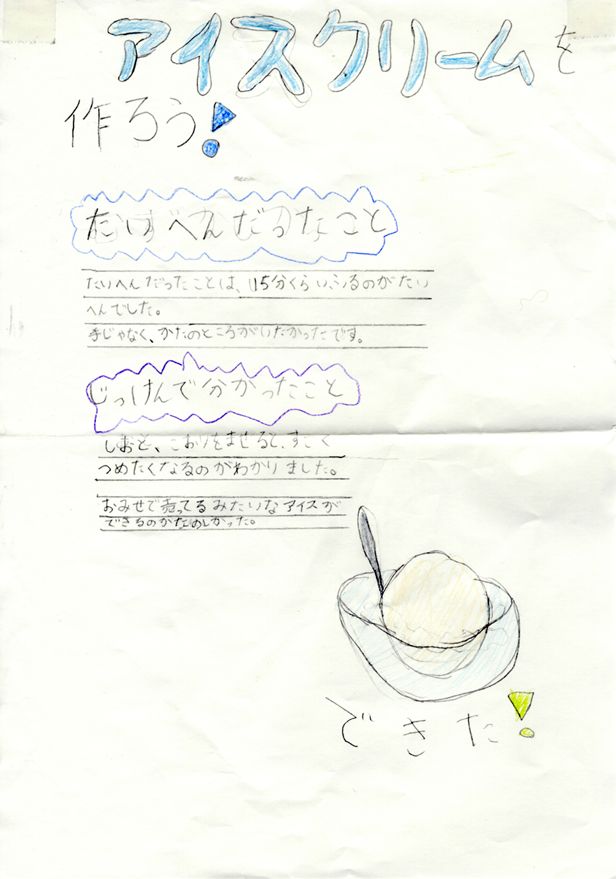 アイスクリームを
作ろう!
たいへんだったこと
たいへんだったことは、15分くらいふるのがたい
へんでした。
手じゃなく、かたのところがいたかったです。
じっけんで分かったこと
しおと、こおりをませると、すごく
つめたくなるのがわかりました。
おみせで売ってるみたいなアイスが
できるのがたのしかった。
できた!